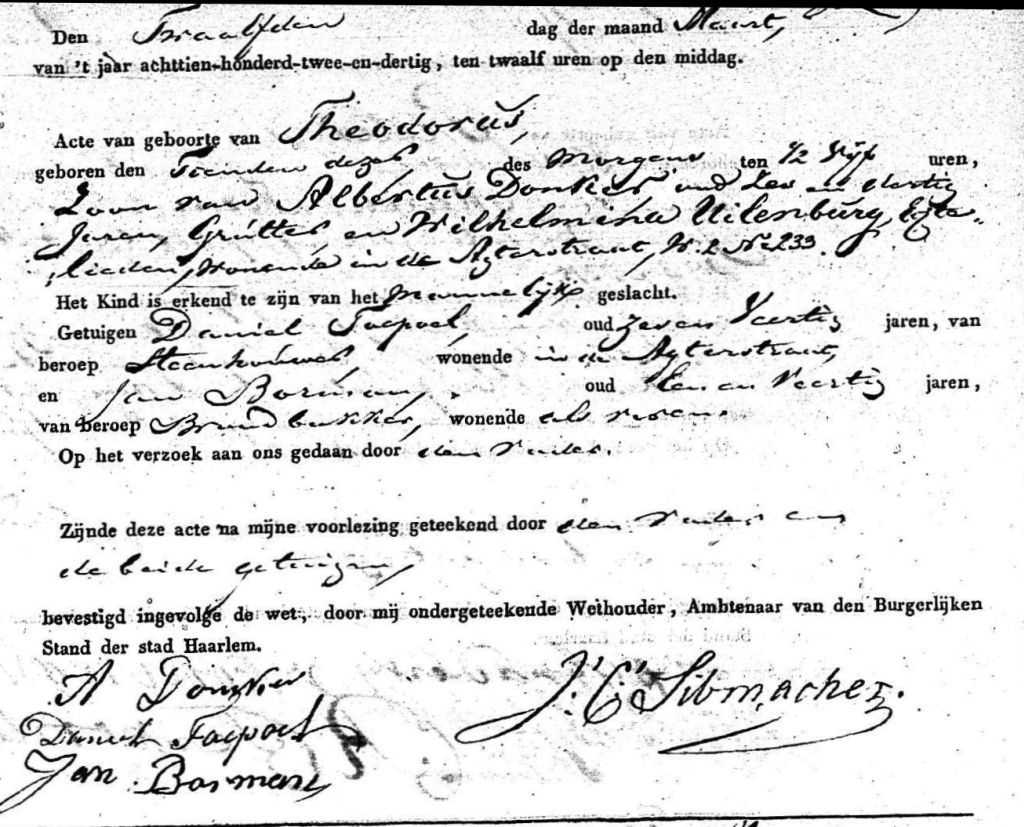 Den Twaalfden dag der maand Maart,
van 't jaar achttien-honderd-twee-en-dertig, ten twaalf uren op den middag.
Acte van geboorte van Theodorus,
geboren den Tienden dezer des morgens ten 1/2 Vijf uren,
Zoon van Albertus Donker oud Zes en dertig
Jaren, Grutter en Wilhelmina Uilenburg, Egte-
lieden, wonende in de Agterstraat, W. 2 No 233.
Het Kind is erkend te zijn van het mannelijk geslacht.
Getuigen Daniel Taepoel, oud zeven Veertig jaren, van
beroep Steenhouwer, wonende in de Agterstraat,
en Jan Borman, oud Een en Veertig jaren,
van beroep Broodbakker, wonende als voren.
Op het verzoek aan ons gedaan door den Vader.
Zijnde deze acte na mijne voorlezing geteekend door den Vader en
de beide getuigen,
bevestigd ingevolge de wet, door mij ondergeteekende Wethouder, Ambtenaar van den Burgerlijken
Stand der stad Haarlem.
A Donker
J: C: Sibmacher.
Daniel Taepoel
Jan Borman